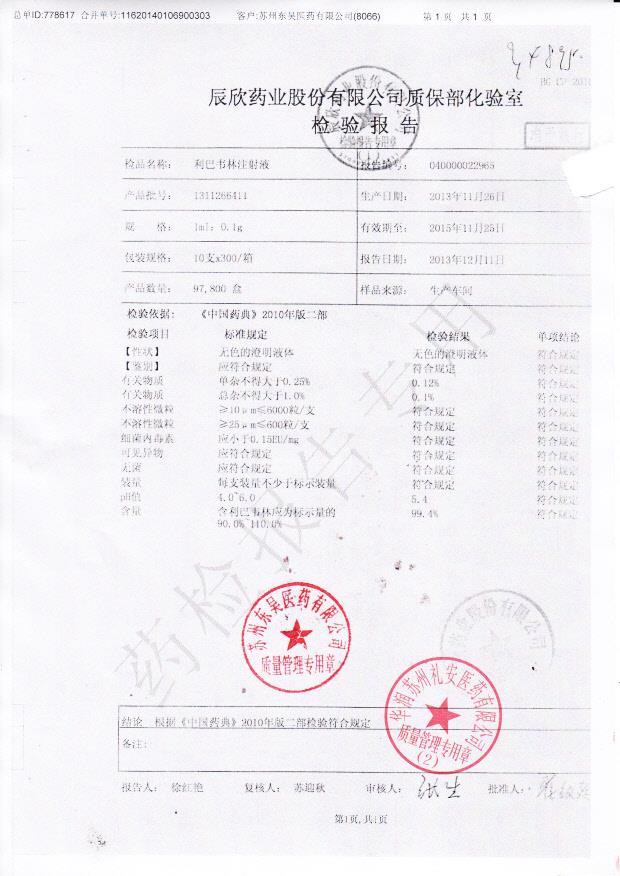 总单ID:778617 合并单号:11620140106900303 客户:苏州东吴医药有限公司(8066) 第 1 页 共 1 页
辰欣药业股份有限公司质保部化验室
检 验 报 告
检品名称: 利巴韦林注射液 报告编号: 040000022965
产品批号: 1311266411 生产日期: 2013年11月26日
规 格: 1ml:0.1g 有效期至: 2015年11月25日
包装规格: 10支x300/箱 报告日期: 2013年12月11日
产品数量: 97,800 盒 样品来源: 生产车间
检验依据: 《中国药典》2010年版二部
检验项目 标准规定 检验结果 单项结论
【性状】 无色的澄明液体 无色的澄明液体 符合规定
【鉴别】 应符合规定 符合规定 符合规定
有关物质 单杂不得大于0.25% 0.12% 符合规定
有关物质 总杂不得大于1.0% 0.1% 符合规定
不溶性微粒 ≥10μm≤6000粒/支 符合规定 符合规定
不溶性微粒 ≥25μm≤600粒/支 符合规定 符合规定
细菌内毒素 应小于0.15EU/mg 符合规定 符合规定
可见异物 应符合规定 符合规定 符合规定
无菌 应符合规定 符合规定 符合规定
装量 每支装量不少于标示装量 符合规定 符合规定
pH值 4.0~6.0 5.4 符合规定
含量 含利巴韦林应为标示量的 99.4% 符合规定
90.0%~110.0%
药检报告专用
苏州东吴医药有限公司
质量管理专用章
华润苏州礼安医药有限公司
质量管理专用章
(2)
结论 根据《中国药典》2010年版二部检验符合规定
备注:
报告人: 徐红艳 复核人: 苏迎秋 审核人: 批准人:
第1页,共1页